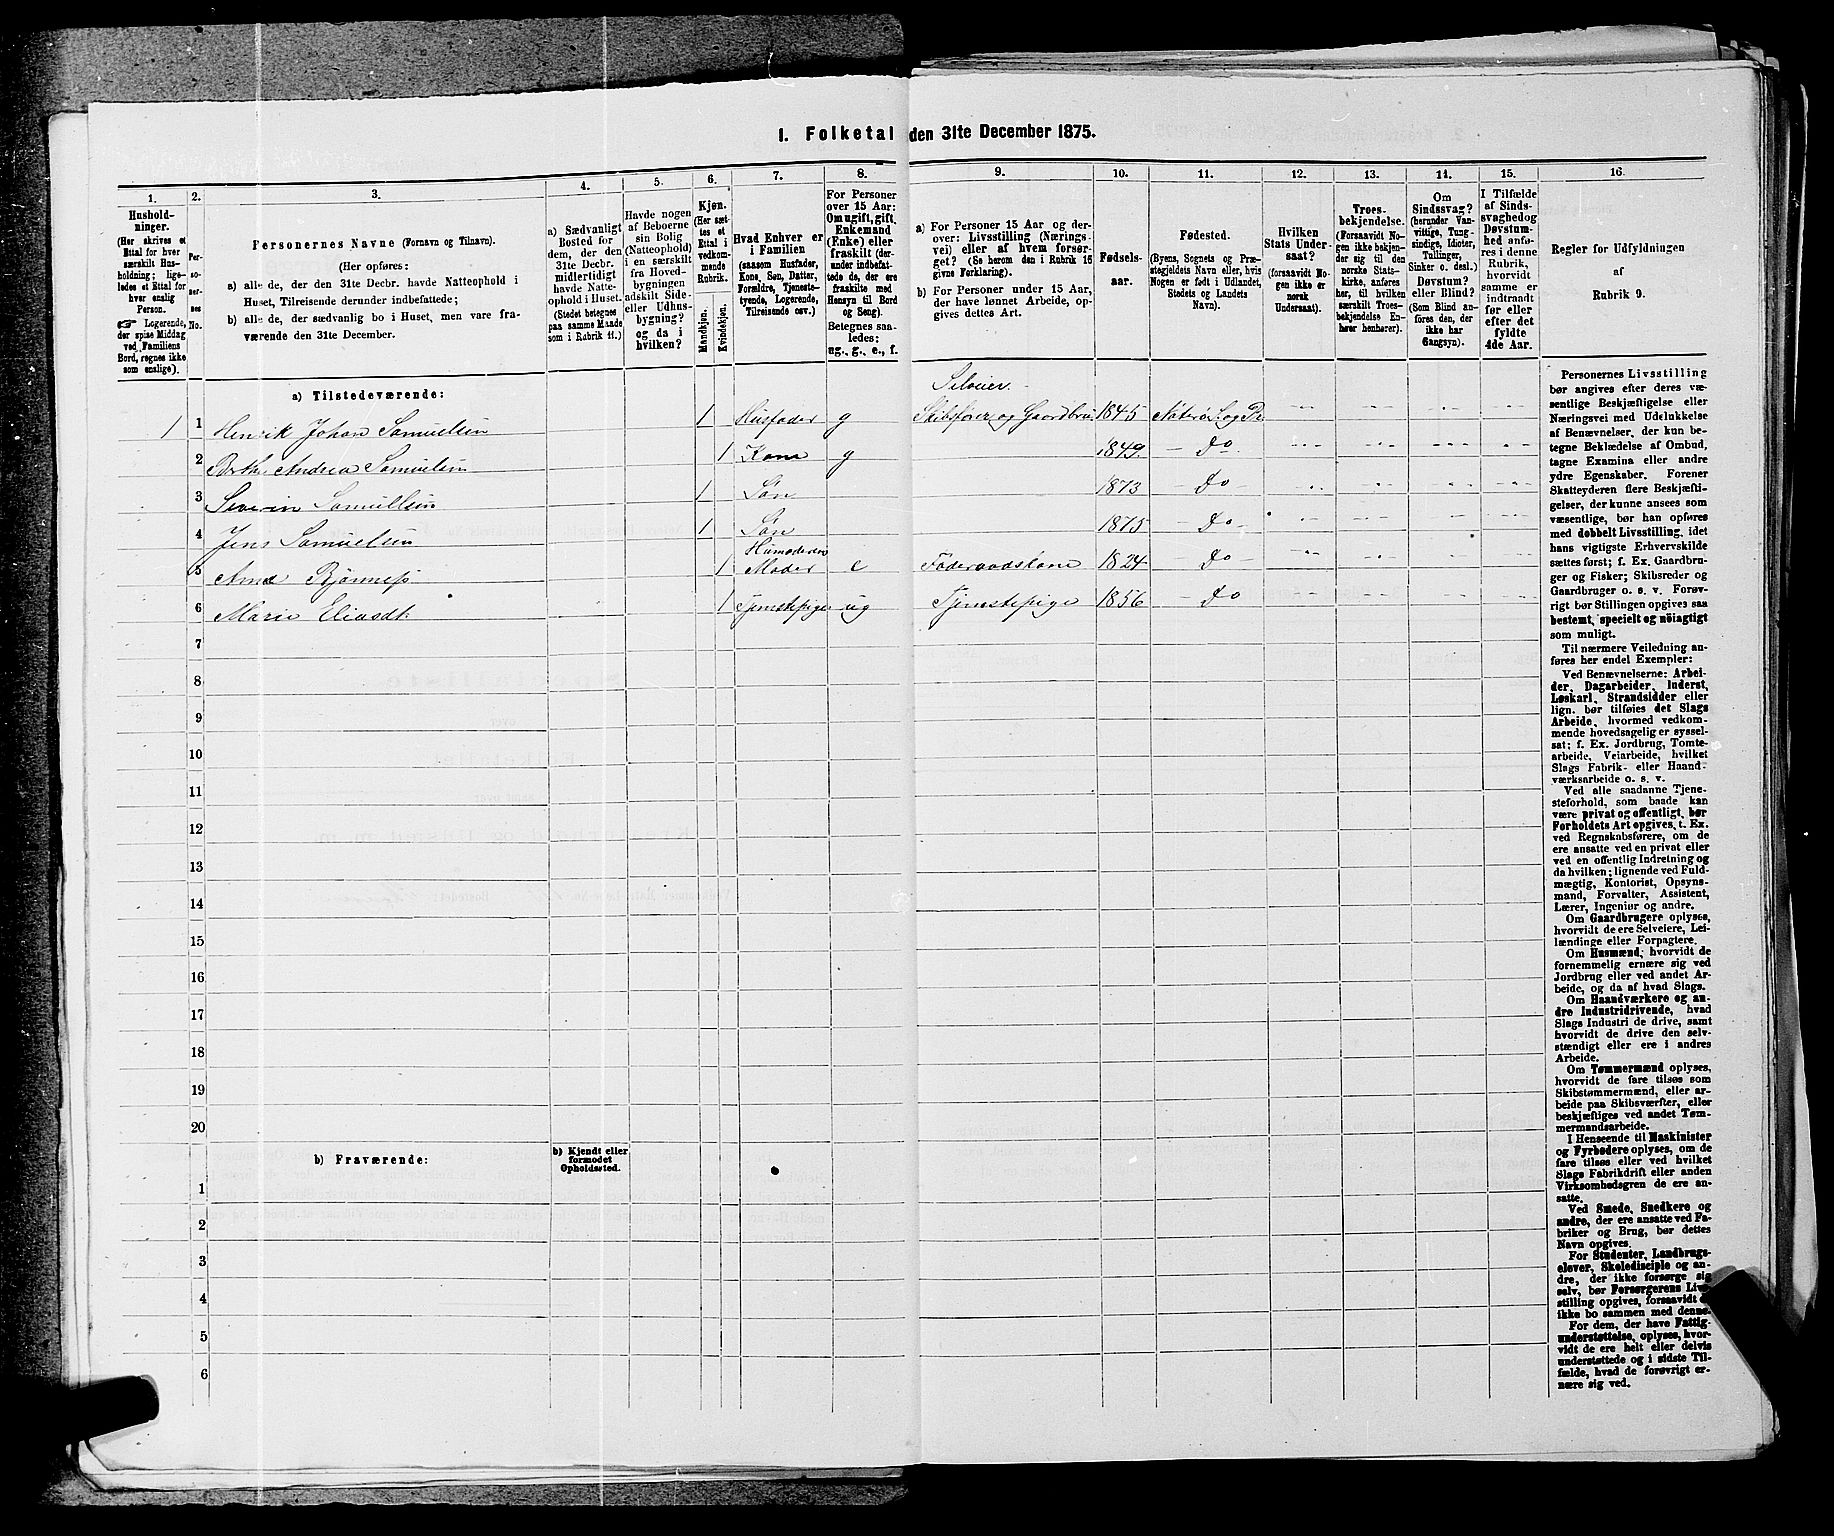 I. Folketal den 31te December 1875.
1.
Hushold-
ninger.
(Her skrives et
Ettal for hver
særskilt Hus-
holdning; lige-
ledes et Ettal for
hver enslig
Person.
☞ Logerende,
der spise Middag
ved Familiens
Bord, regnes ikke
som enslige).
2.
Per-
so-
ner-
nes
No.
3.
Personernes Navne (Fornavn og Tilnavn).
(Her opføres:
a) alle de, der den 31te Decbr. havde Natteophold i
Huset, Tilreisende derunder indbefattede;
b) alle de, der sædvanlig bo i Huset, men vare fra-
værende den 31te December.
4.
a) Sædvanligt
Bosted for
dem, der den
31te Decbr.
midlertidigt
havde Natte-
ophold i Huset.
(Stedet betegnes
paa samme Maade
som i Rubrik 11.)
5.
Havde nogen
af Beboerne
sin Bolig
(Natteophold)
i en særskilt
fra Hoved-
bygningen
adskilt Side-
eller Udhus-
bygning?
og da i
hvilken?
6.
Kjøn.
(Her sæt-
tes et
Ettal i
vedkom-
mende
Rubrik.
Mandkjøn.
Kvindekjøn.
7.
Hvad Enhver er
i Familien
(saasom Husfader,
Kone, Søn, Datter,
Forældre, Tjeneste-
tyende, Logerende,
Tilreisende osv.)
8.
For Personer
over 15 Aar:
Om ugift, gift,
Enkemand
(Enke) eller
fraskilt (der-
ander indbefat-
tede de, der ere
fraskilte med
Hensyn til Bord
og Seng).
Betegnes saa-
ledes:
ug., g., e., f.
9.
a) For Personer 15 Aar og der-
over: Livsstilling (Nærings-
vei) eller af hvem forsør-
get? (Se herom den i Rubrik 16
givne Forklaring).
b) For Personer under 15 Aar,
der have lønnet Arbeide, op-
gives dettes Art.
10.
Fødsels-
aar.
11.
Fødested.
(Byens, Sognets og Præ-
stegjeldets Navn eller, hvis
Nogen er født i Udlandet,
Stedets og Landets
Navn).
12.
Hvilken
Stats Under-
saat?
(forsaavidt No-
gen ikke er
norsk
Undersaat).
13.
Troes-
bekjendelse.
(Forsaavidt No-
gen ikke bekjen-
der sig til den
norske Stats-
kirke, anføres
her, til hvilken
særskilt Troes-
bekjendelse En-
hver henhører).
14.
Om
Sindssvag?
(herunder Van-
vittige, Tung-
sindige, Idioter,
Tullinger,
Sinker o. desl.)
Døvstum?
eller Blind?
(Som Blind an-
føres den, der
ikke har
Gangsyn).
15.
I Tilfælde
af Sinds-
svaghedog
Døvstum-
hed anfø-
res i denne
Rubrik,
hvorvidt
samme er
indtraadt
før eller
efter det
fyldte
4de Aar.
16.
Regler for Udfyldningen
af
Rubrik 9.
a) Tilstedeværende:
Selveier
1 1 Henrik Johan Samuelsen 1 Husfader g Skibsfører og Gaardbru 1845
2 Berthe Andrea Samuelsen 1 Kone g 1849 Do
3 Severin Samuelsen 1 Søn 1873 Do
4 Jens Samuelsen 1 Søn 1875 Do
5 Ane 1 Moder e Føderaadskone 1824 Do
6 Marie Eliasdt. 1 Tjenstepige ug Tjenstepige 1856 Do
7
8
9
10
11
12
13
14
15
16
17
18
19
20
b) Fraværende:
b) Kjendt eller
formodet
Opholdssted.
1
2
3
4
5
6
Personernes Livsstilling
bør angives efter deres væ-
sentlige Beskjæftigelse eller
Næringsvei med Udelukkelse
af Benævnelser, der kun be-
tegne Beklædelse af Ombud,
tagne Examina eller andre
ydre Egenskaber. Forener
Skatteyderen flere Beskjæfti-
gelser, der kunne ansees som
væsentlige, bør han opføres
med dobbelt Livsstilling, idet
hans vigtigste Erhvervskilde
sættes først; f. Ex. Gaardbru-
ger og Fisker; Skibsreder og
Gaardbruger o. s. v. Forøv-
rigt bør Stillingen opgives saa
bestemt, specielt og nöiagtigt
som muligt.
Til nærmere Veiledning an-
føres her endel Exempler:
Ved Benævnelserne: Arbei-
der, Dagarbeider, Inderst,
Løskarl, Strandsidder eller
lign. bør tilføies det Slags
Arbeide, hvormed vedkom-
mende hovedsagelig er syssel-
sat; f. Ex. Jordbrug, Tomte-
arbeide, Veiarbeide, hvilket
Slags Fabrik- eller Haand-
værksarbeide o. s. v.
Ved alle saadanne Tjene-
steforhold, som baade kan
være privat og offentligt, bør
Forholdets Art opgives, t. Ex.
ved Regnskabsførere, om de
ere ansatte ved en privat eller
ved en offentlig Indretning og
da hvilken; lignende ved Fuld-
mægtig, Kontorist, Opsyns-
mand, Forvalter, Assistent,
Lærer, Ingeniør og andre.
Om Gaardbrugere oplyses,
hvorvidt de ere Selveiere, Lei-
lændinge eller Forpagtere.
Om Husmænd, hvorvidt de
fornemmelig ernære sig ved
Jordbrug eller ved andet Ar-
beide, og da af hvad Slags.
Om Haandværkere og an-
dre Industridrivende, hvad
Slags Industri de drive, samt
hvorvidt de drive den selv-
stændigt eller ere i andres
Arbeide.
Om Tømmermænd oplyses,
hvorvidt de fare tilsøs som
Skibstømmermænd, eller ar-
beide paa Skibsværfter, eller
beskjæftiges ved andet Tøm-
mermandsarbeide.
I Henseende til Maskinister
og Fyrbødere oplyses, om de
fare tilsøs eller ved hvilket
Slags Fabrikdrift eller anden
Virksomhedsgren de ere an-
satte.
Ved Smede, Snedkere og
andre, der ere ansatte ved Fa-
briker og Brug, bør dettes
Navn opgives.
For Studenter, Landbrugs-
elever, Skoledisciple og an-
dre, der ikke forsørge sig
selv, bør Forsørgerens Liv-
stilling opgives, forsaavidt
ikke bo sammen med denne.
For dem, der have Fattig-
understøttelse, oplyses, hvor-
vidt de ere helt eller delvis
understøttede og i sidste Til-
fælde, hvad de forøvrigt er-
nære sig ved.